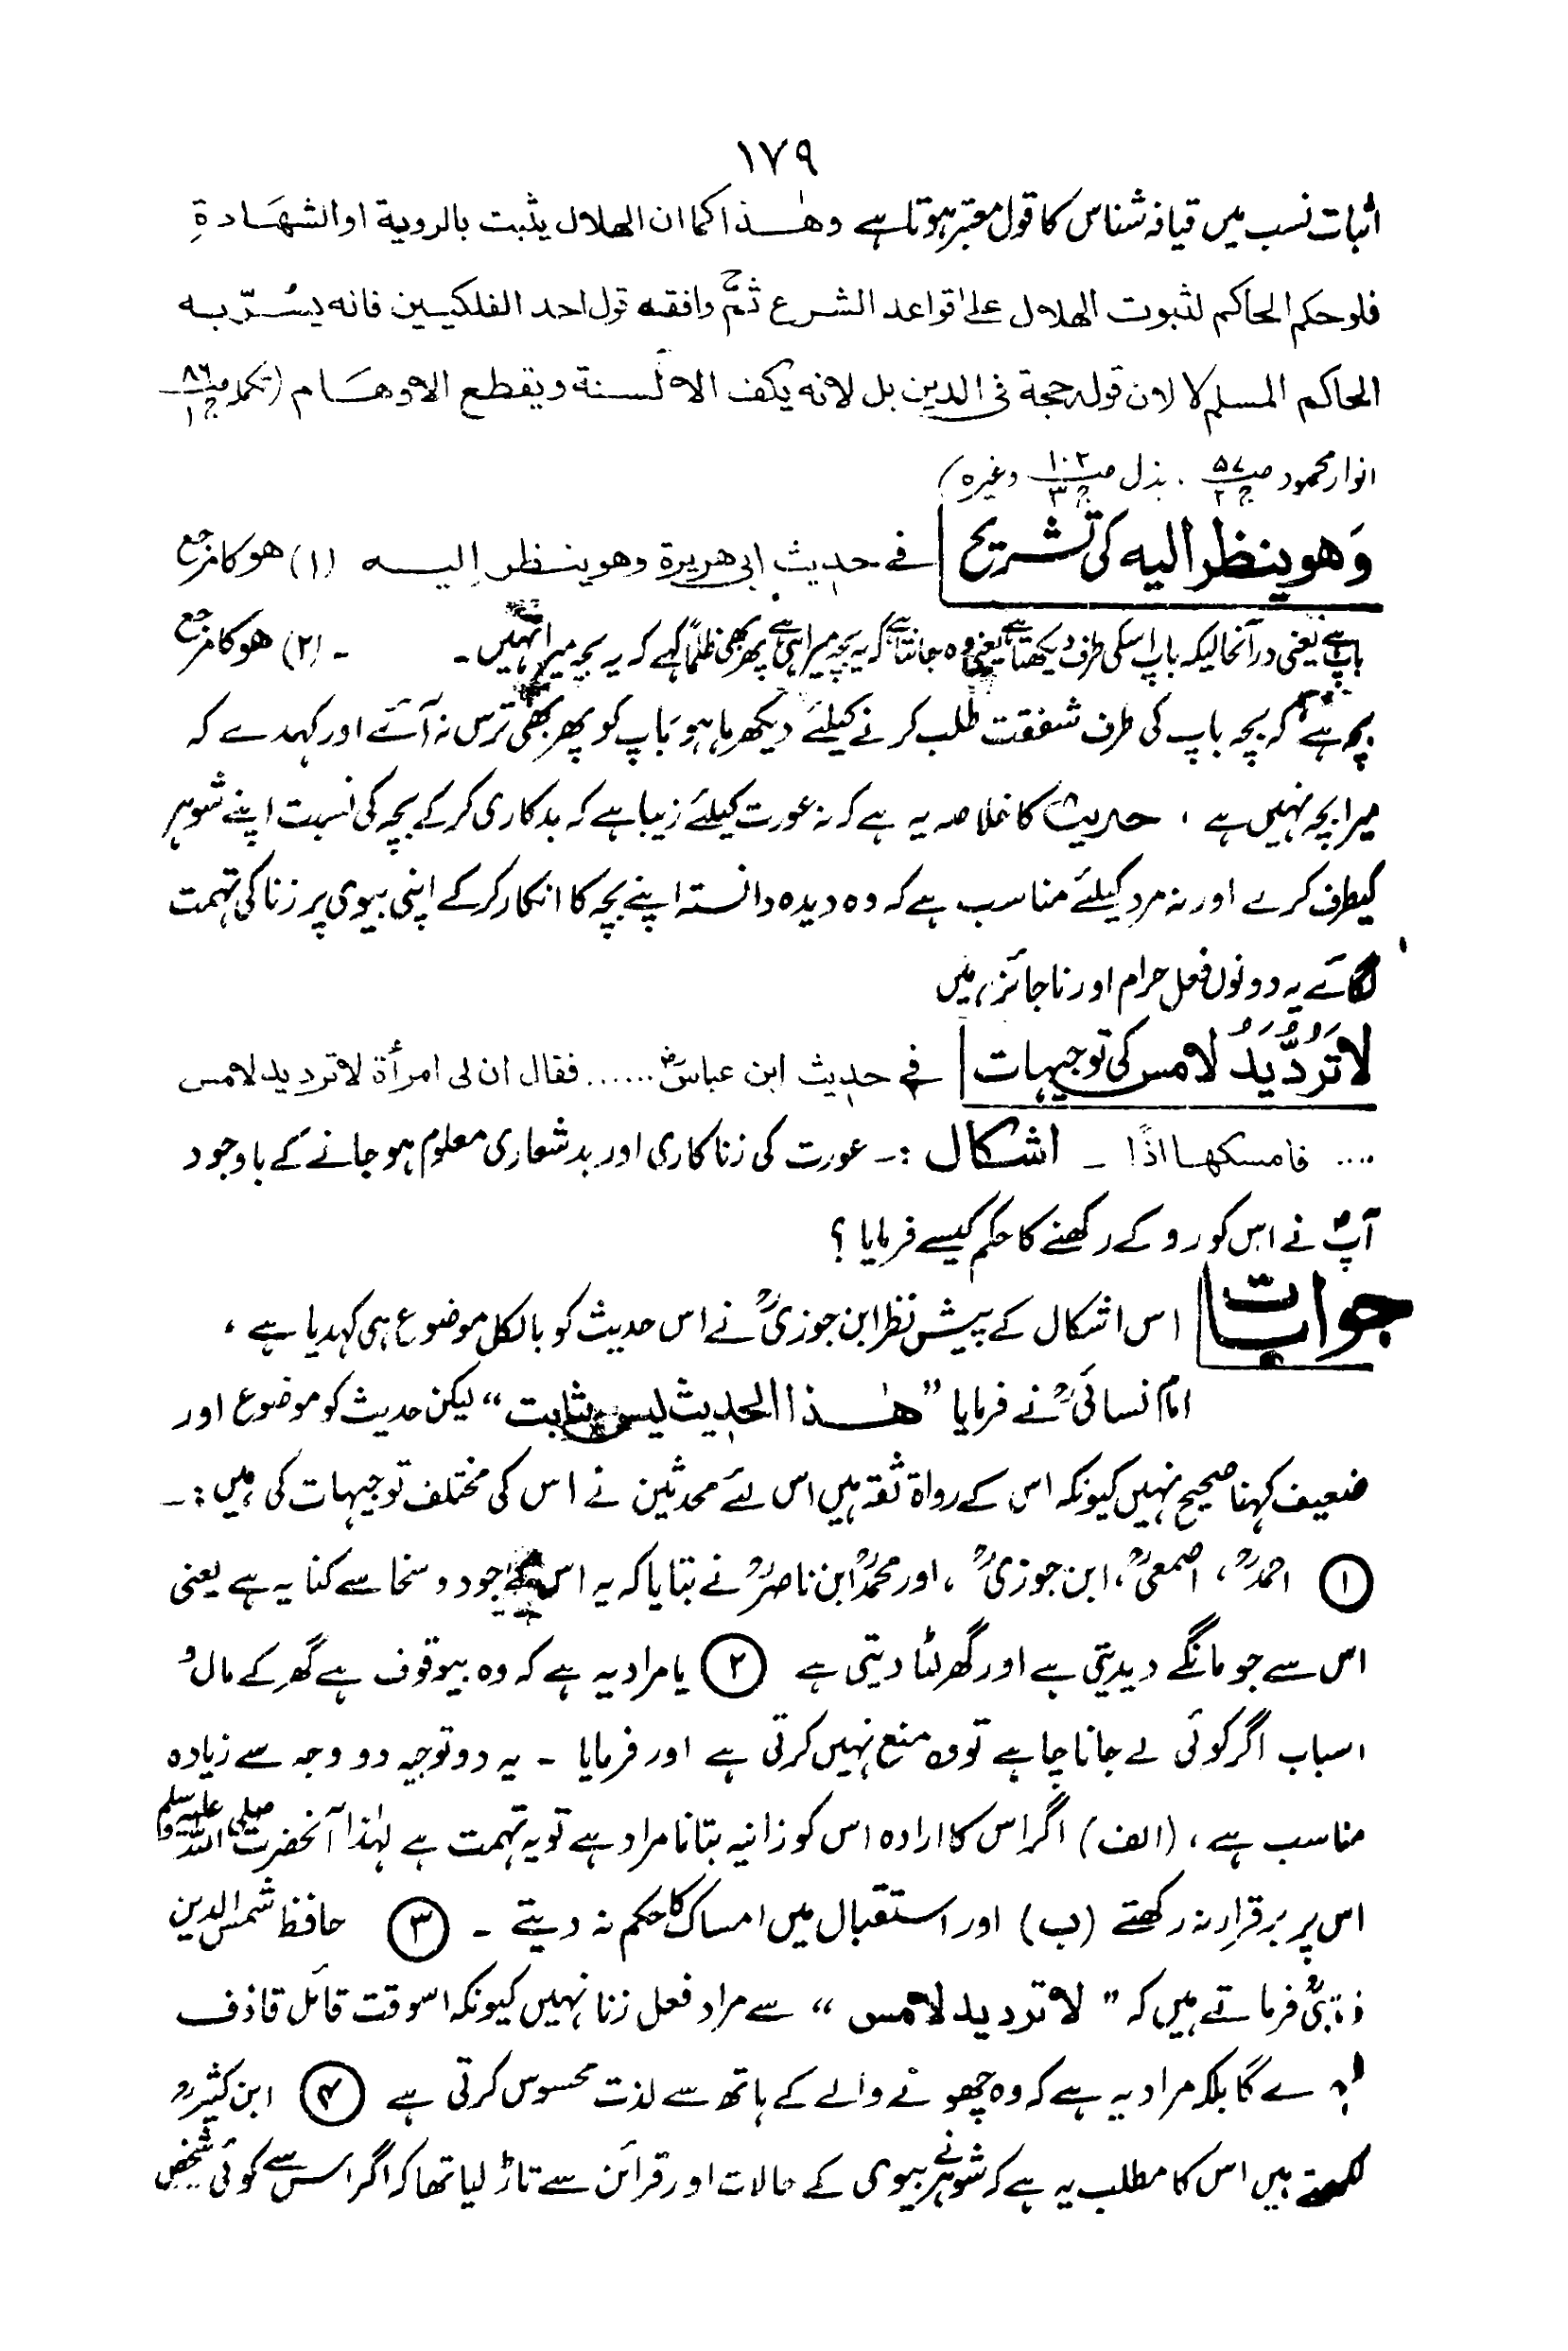 ۱۷۹
اثبات نسب میں قیافہ شناس کا قول معتبر ہوتا ہے وھٰذا کما ان الھلال یثبت بالرویۃ او الشھَادۃِ
فلو حکم الحاکم لثبوت الھلال علیٰ قواعد الشرع ثمّ وافقہ قول احد الفلکیین فانہ یسُرّ بہ
الحاکم المسلم لا لان قولہ حجۃ فی الدین بل لانہ یکف الالسنۃ ویقطع الاوھَام (تکملہ ص۸۶ ج۱
انوار محمود ص۵۷ ج۲ ، بذل ص۱۰۲ ج۳ وغیرہ)
وَھو ینظر الیہ کی تشریح فی حدیث ابی ھریرۃ وھو ینظر إلیہ (۱) ھو کا مرجع
باپ ہے یعنی درآنحالیکہ باپ اسکی طرف دیکھتا ہے یعنی وہ جانتا ہے کہ یہ بچہ میرا ہی ہے پھر بھی ظلماً کہے کہ یہ بچہ میرا نہیں ۔ ۔ (۲) ھو کا مرجع
بچہ ہے کہ بچہ باپ کی طرف شفقت طلب کرنے کیلئے دیکھ رہا ہو بَاپ کو پھر بھی ترس نہ آئے اور کہدے کہ
میرا بچہ نہیں ہے ، حدیث کا خلاصہ یہ ہے کہ نہ عورت کیلئے زیبا ہے کہ بدکاری کر کے بچہ کی نسبت اپنے شوہر
کیطرف کرے اور نہ مرد کیلئے مناسب ہے کہ وہ دیدہ دانستہ اپنے بچہ کا انکار کر کے اپنی بیوی پر زنا کی تہمت
لگائے یہ دونوں فعل حرام اور ناجائز ہیں
لَا تَرُدُّ یَدُ لامس کی توجیہات فی حدیث ابن عباسؓ ...... فقال ان لی امرأۃ لا ترد ید لامس
.... فامسکھا اذًا ۔ اشکال :۔ عورت کی زناکاری اور بدشعاری معلوم ہو جانے کے باوجود
آپؐ نے اس کو روکے رکھنے کا حکم کیسے فرمایا ؟
جوابات اس اشکال کے پیش نظر ابن جوزیؒ نے اس حدیث کو بالکل موضوع ہی کہدیا ہے ،
امام نسائیؒ نے فرمایا ” ھٰذا الحدیث لیس بثابت “ لیکن حدیث کو موضوع اور
ضعیف کہنا صحیح نہیں کیونکہ اس کے رواۃ ثقہ ہیں اس لئے محدثین نے اس کی مختلف توجیہات کی ہیں :۔
① احمدؒ ، اصمعیؒ ، ابن جوزیؒ ، اور محمدؒ ابن ناصرؒ نے بتایا کہ یہ اس کے جود و سخا سے کنایہ ہے یعنی
اس سے جو مانگے دیدیتی ہے اور گھر لٹا دیتی ہے ② یا مراد یہ ہے کہ وہ بیوقوف ہے گھر کے مال و
اسباب اگر کوئی لے جانا چاہے تو وہ منع نہیں کرتی ہے اور فرمایا ۔ یہ دو توجیہ دو وجہ سے زیادہ
مناسب ہے ، (الف) اگر اس کا ارادہ اس کو زانیہ بتانا مراد ہے تو یہ تہمت ہے لہٰذا آنحضرت صلی اللہ علیہ وسلم
اس پر برقرار نہ رکھتے (ب) اور استقبال میں امساک کا حکم نہ دیتے ۔ ③ حافظ شمس الدین
ذہبیؒ فرماتے ہیں کہ ” لا ترد ید لامس “ سے مراد فعل زنا نہیں کیونکہ اسوقت قائل قاذف
ہو جائے گا بلکہ مراد یہ ہے کہ وہ چھونے والے کے ہاتھ سے لذت محسوس کرتی ہے ④ ابن کثیرؒ
لکھتے ہیں اس کا مطلب یہ ہے کہ شوہر نے بیوی کے حالات اور قرائن سے تاڑ لیا تھا کہ اگر اس سے کوئی شخص